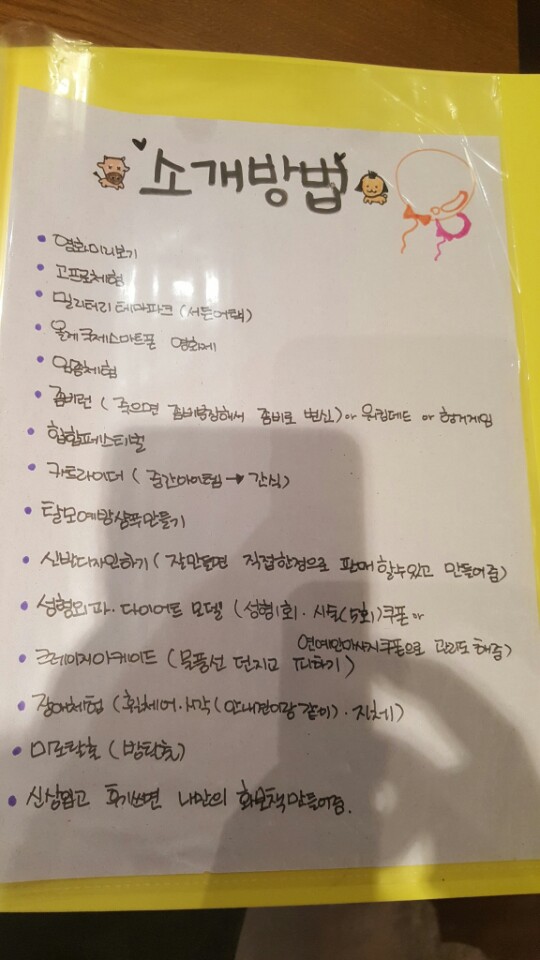 소개방법
• 영화미리보기
• 고프로체험
• 밀리터리 테마파크 (서든어택)
• 올레국제스마트폰 영화제
• 임종체험
• 좀비런 ( 죽으면 좀비분장해서 좀비로 변신) or 워킹데드 or 헝거게임
• 힙합페스티벌
• 카트라이더 ( 중간아이템 → 간식)
• 탈모예방샴푸만들기
• 신발디자인하기 ( 잘만들면 직접한정으로 판매 할수있고 만들어줌)
• 성형외과 · 다이어트 모델 (성형1회 · 시술(5회)쿠폰 or
연예인마사지쿠폰으로 관리도 해줌)
• 크레이지아케이드 (물풍선 던지고 피하기)
• 장애체험 (휠체어 · 시각 (안내견이랑 같이) · 지체)
• 미로탈출 (방탈출)
• 신상입고 후기쓰면 나만의 화보책만들어줌.